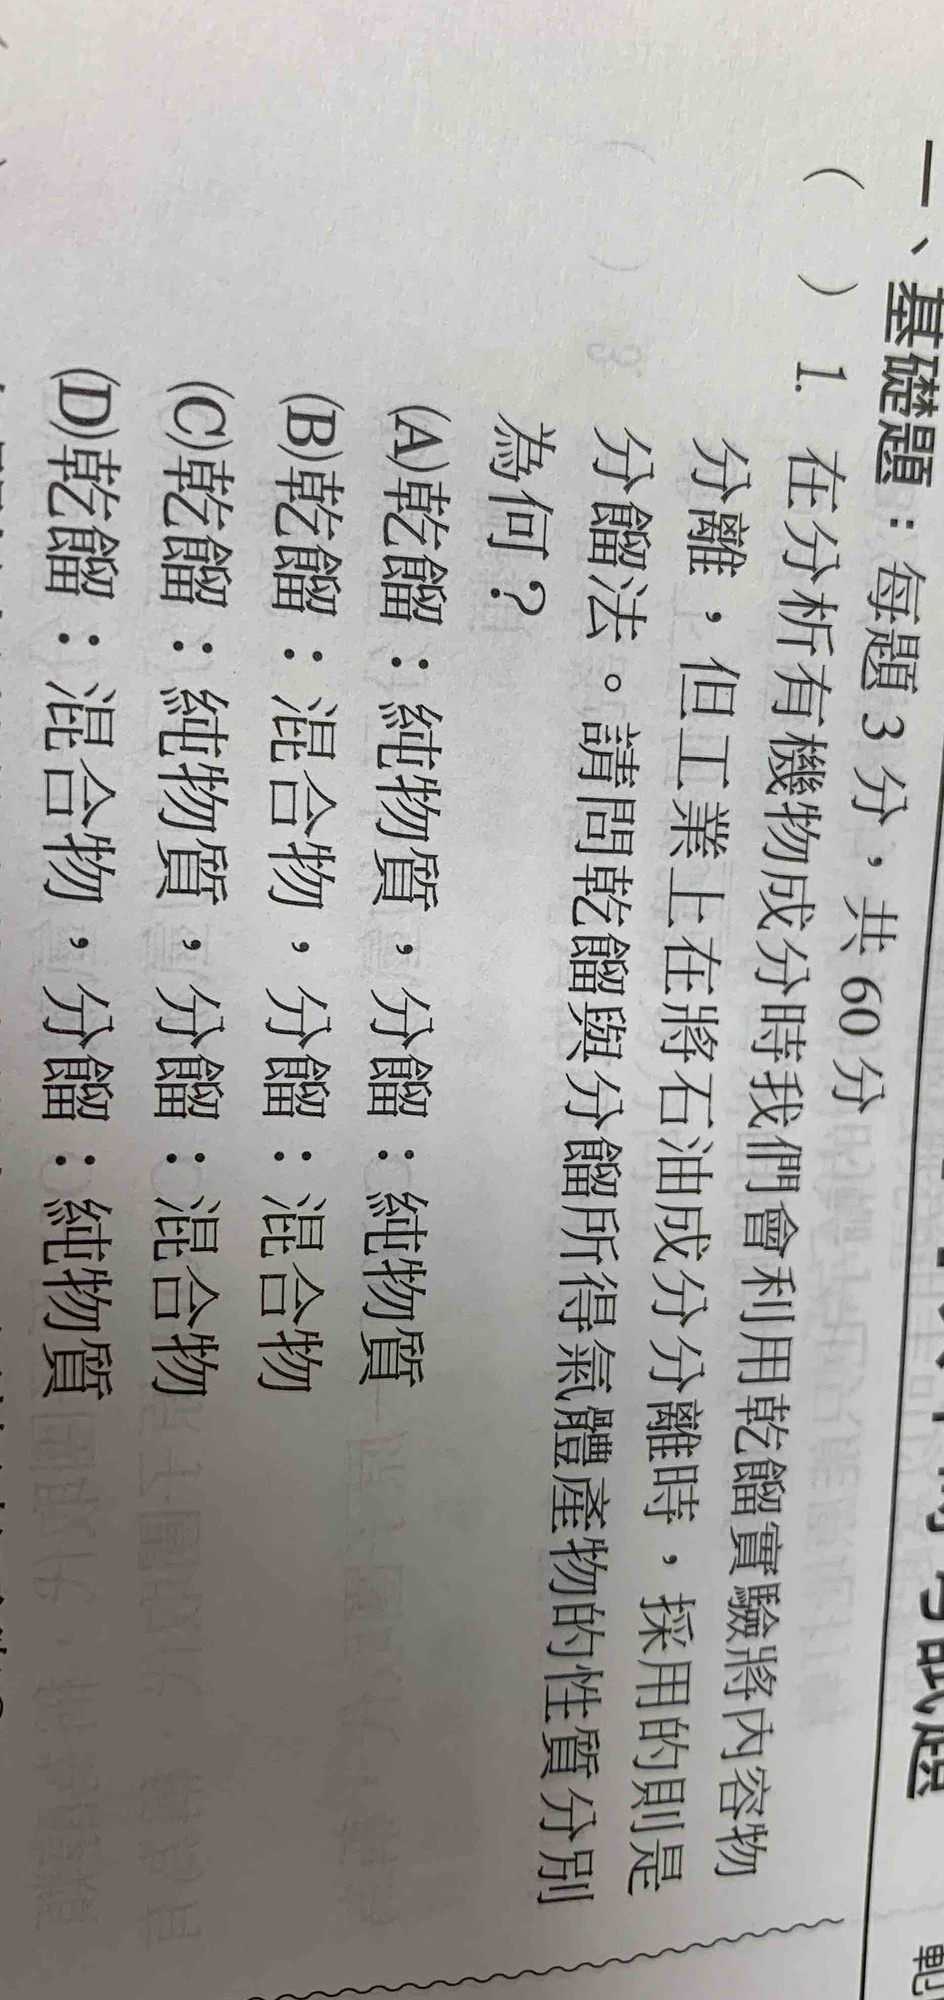 一、基礎題：每題3分，共60分
（　）1. 在分析有機物成分時我們會利用乾餾實驗將內容物
分離，但工業上在將石油成分分離時，採用的則是
分餾法。請問乾餾與分餾所得氣體產物的性質分別
為何？
(A)乾餾：純物質，分餾：純物質
(B)乾餾：混合物，分餾：混合物
(C)乾餾：純物質，分餾：混合物
(D)乾餾：混合物，分餾：純物質